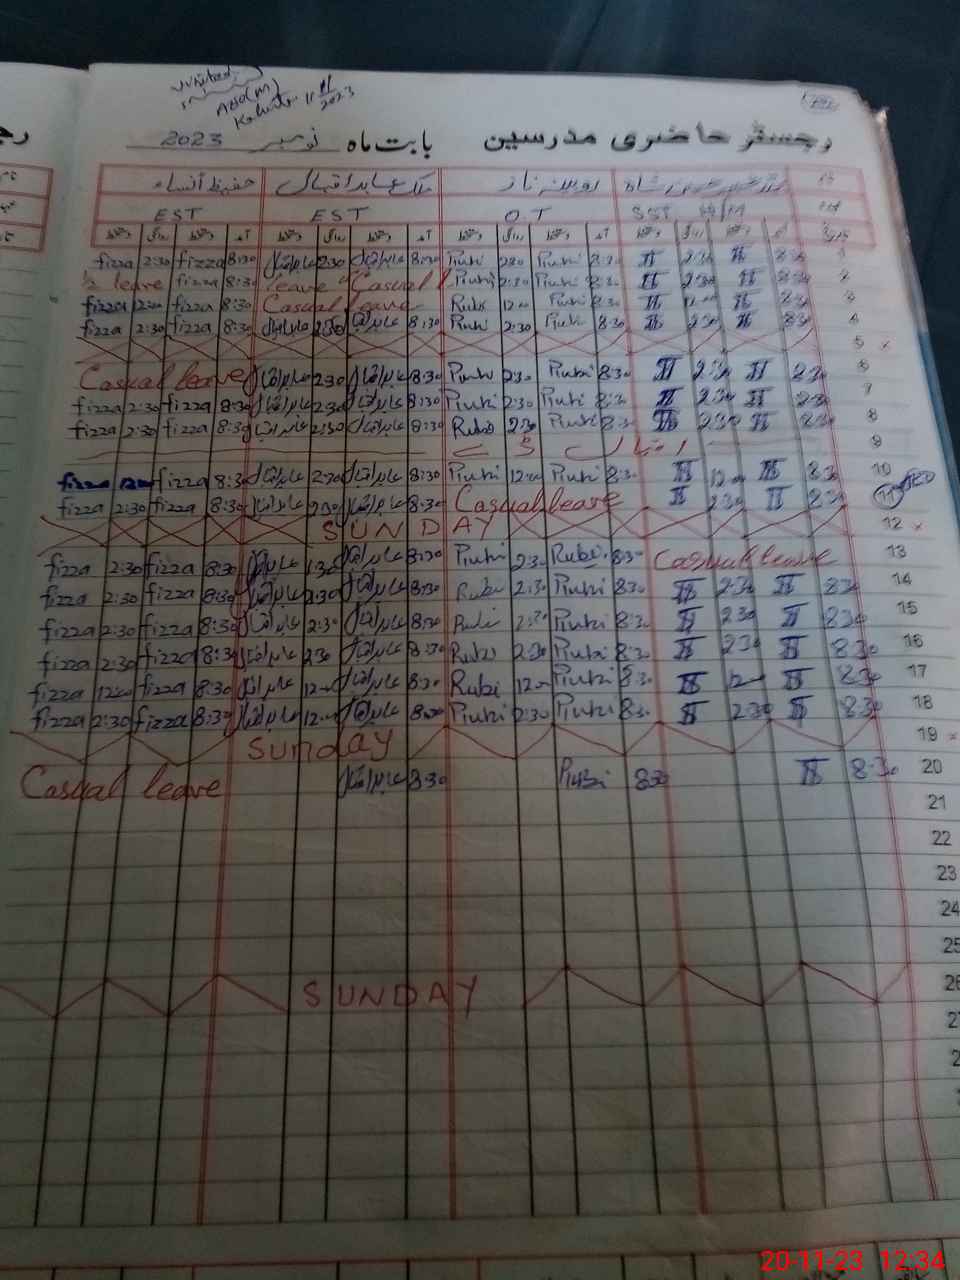 Visited
ADEO(M)
Kahuta 11/11/2023
رجسٹر حاضری مدرسین بابت ماہ نومبر 2023
نام روبینہ ناز ملک عابد اقبال حفیظ النساء
عہدہ SST O.T EST EST
تاریخ آمد دستخط روانگی دستخط آمد دستخط روانگی دستخط آمد دستخط روانگی دستخط آمد دستخط روانگی دستخط
fizza 2:30 fizza 8:30 عابد اقبال 2:30 عابد اقبال 8:30 Rubi 2:30 Rubi 8:30 2:30 8:30
½ leave fizza 8:30 Casual leave Rubi 2:30 Rubi 8:30 2:30 8:30
fizza 12:00 fizza 8:30 Casual leave Rubi 12:00 Rubi 8:30 12:00 8:30
fizza 2:30 fizza 8:30 عابد اقبال 2:30 عابد اقبال 8:30 Rubi 2:30 Rubi 8:30 2:30 8:30 4
5 ×
Casual leave عابد اقبال 2:30 عابد اقبال 8:30 Rubi 2:30 Rubi 8:30 2:30 8:30 6
fizza 2:30 fizza 8:30 عابد اقبال 2:30 عابد اقبال 8:30 Rubi 2:30 Rubi 8:30 2:30 8:30 7
fizza 2:30 fizza 8:30 عابد اقبال 2:30 عابد اقبال 8:30 Rubi 2:30 Rubi 8:30 2:30 8:30 8
اقبال ڈے 9
fizza 12:00 fizza 8:30 عابد اقبال 2:30 عابد اقبال 8:30 Rubi 12:00 Rubi 8:30 12:00 8:30 10
fizza 2:30 fizza 8:30 عابد اقبال 2:30 عابد اقبال 8:30 Casual leave 2:30 8:30 11
SUNDAY 12 ×
fizza 2:30 fizza 8:30 عابد اقبال 1:30 عابد اقبال 8:30 Rubi 2:30 Rubi 8:30 Casual leave 13
fizza 2:30 fizza 8:30 عابد اقبال 2:30 عابد اقبال 8:30 Rubi 2:30 Rubi 8:30 2:30 8:30 14
fizza 2:30 fizza 8:30 عابد اقبال 2:30 عابد اقبال 8:30 Rubi 2:30 Rubi 8:30 2:30 8:30 15
fizza 2:30 fizza 8:30 عابد اقبال 2:30 عابد اقبال 8:30 Rubi 2:30 Rubi 8:30 2:30 8:30 16
fizza 12:00 fizza 8:30 عابد اقبال 12:00 عابد اقبال 8:30 Rubi 12:00 Rubi 8:30 12:00 8:30 17
fizza 2:30 fizza 8:30 عابد اقبال 12:00 عابد اقبال 8:30 Rubi 2:30 Rubi 8:30 2:30 8:30 18
Sunday 19 ×
Casual leave عابد اقبال 8:30 Rubi 8:30 8:30 20
21
22
23
24
25
SUNDAY 26
20-11-23 12:34